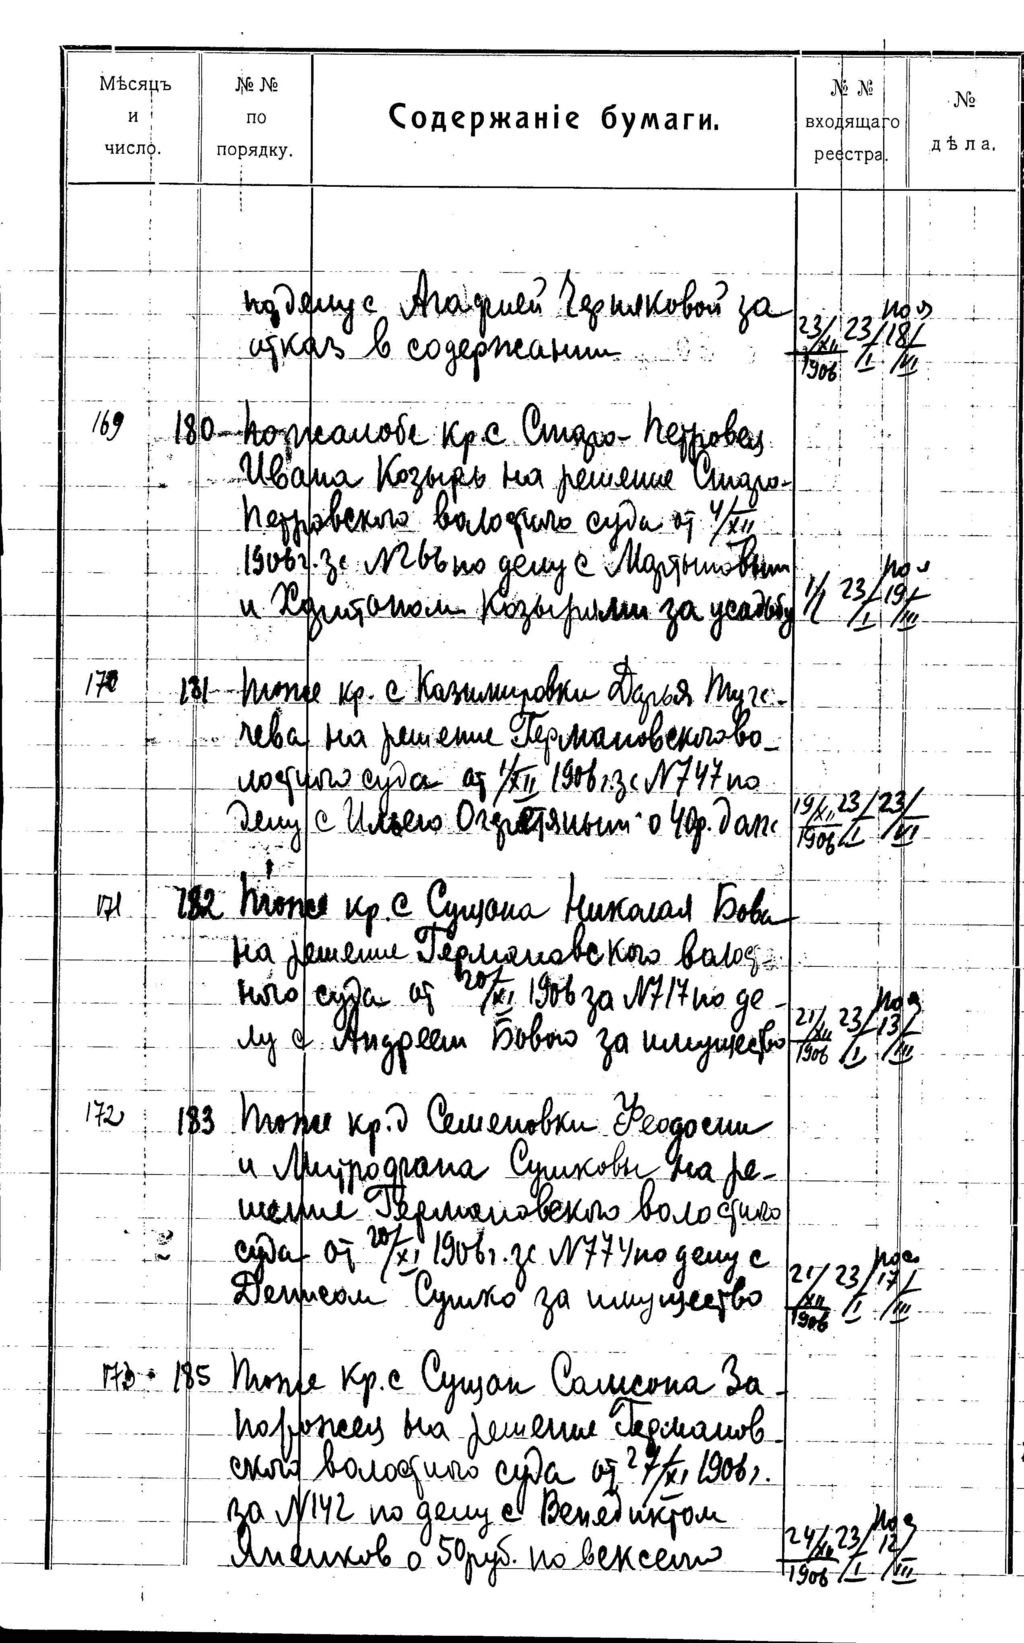 Мѣсяцъ и число.
№ № по порядку.
Содержаніе бумаги.
№ № входящаго реестра.
№ дѣла.
по делу с Агафией Черняковой за
отказ в содержании 23/XII 1906 23/I 18/VI
169 180 По жалобе кр. с Старо-Петровец
Ивана Козырь на решение Старо-
Петровского волостного суда от 4/XII
1906 г. за №266 по делу с Мартыновым
и Харитоном Козырями за усадьбу 1/I 23/I 19/III
170 181 Тоже кр. с Казимировки Дарья
на решение Германовского во-
лостного суда от 1/XII 1906 г. за №747 по
делу с Ильею о 40р. долг 19/XII 1906 23/I 23/VI
171 182 Тоже кр. с Сущана Николая Бова
на решение Германовского волост-
ного суда от 20/XI 1906 за №717 по де-
лу с Андреем Бовою за имущество 21/XII 1906 23/I 13/III
172 183 Тоже кр. д Семеновки Феодосии
и Митрофана Сушковы на ре-
шение Германовского волостного
суда от 20/XI 1906 г. за №774 по делу с
Денисом Сушко за имущество 21/XII 1906 23/I 17/III
173 185 Тоже кр. с Сущан Самсона За-
порожец на решение Германов-
ского волостного суда от 27/XI 1906 г.
за №142 по делу с Венедиктом
о 50 руб. по векселю 24/XII 1906 23/I 12/III